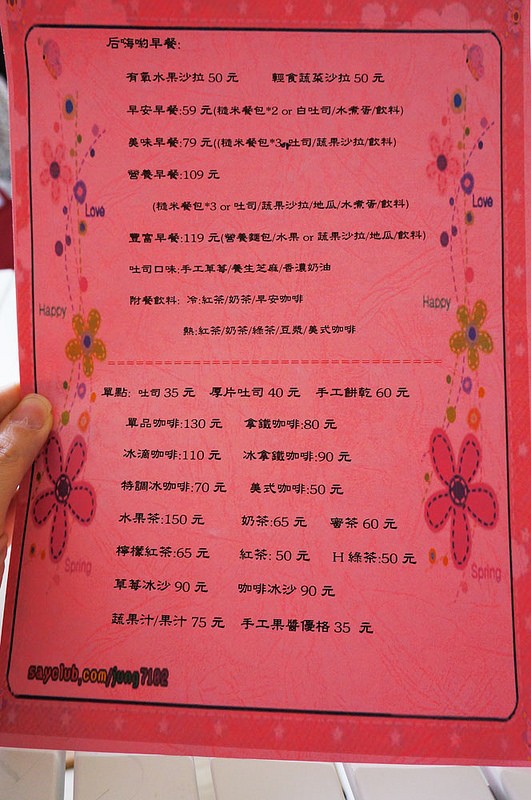 后嗨喲早餐:
有氧水果沙拉 50 元 輕食蔬菜沙拉 50 元
早安早餐:59 元(糙米餐包*2 or 白吐司/水煮蛋/飲料)
美味早餐:79 元((糙米餐包*3 吐司/蔬果沙拉/飲料)
營養早餐:109 元
(糙米餐包*3 or 吐司/蔬果沙拉/地瓜/水煮蛋/飲料)
豐富早餐:119 元(營養麵包/水果 or 蔬果沙拉/地瓜/飲料)
吐司口味:手工草莓/養生芝麻/香濃奶油
附餐飲料: 冷:紅茶/奶茶/早安咖啡
熱:紅茶/奶茶/綠茶/豆漿/美式咖啡
單點: 吐司 35 元 厚片吐司 40 元 手工餅乾 60 元
單品咖啡:130 元 拿鐵咖啡:80 元
冰滴咖啡:110 元 冰拿鐵咖啡:90 元
特調冰咖啡:70 元 美式咖啡:50 元
水果茶:150 元 奶茶:65 元 蜜茶 60 元
檸檬紅茶:65 元 紅茶: 50 元 H 綠茶:50 元
草莓冰沙 90 元 咖啡冰沙 90 元
蔬果汁/果汁 75 元 手工果醬優格 35 元
sayclub.com/jung7182
Love
Happy
Spring
Love
Happy
Spring